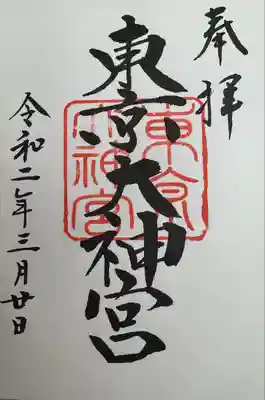 奉拝
東京大神宮
東京大神宮
令和二年三月廿日